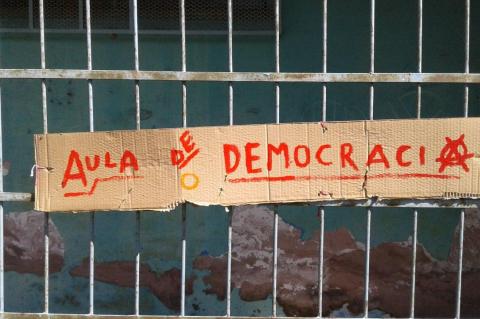 AULA DE DEMOCRACIA